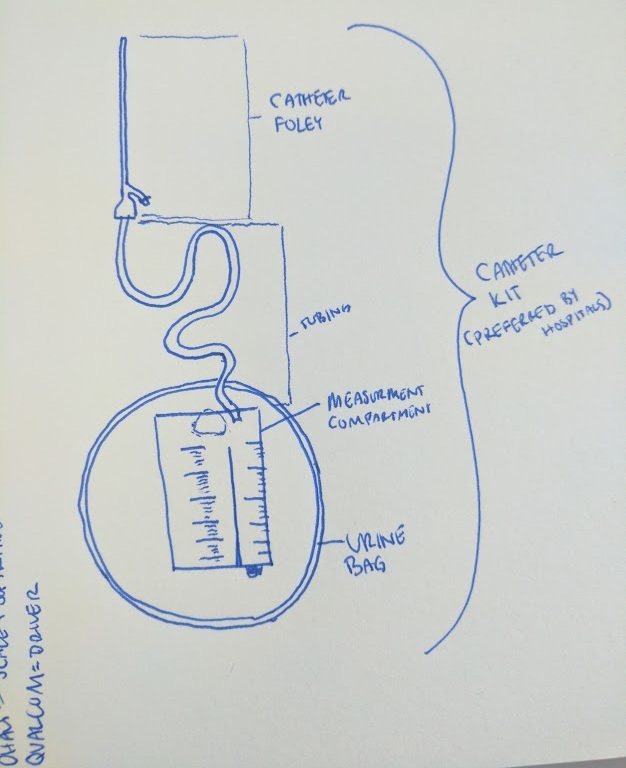 CATHETER
FOLEY
TUBING
CATHETER
KIT
(PREFERRED BY
HOSPITALS)
MEASURMENT
COMPARTMENT
URINE
BAG
QUALCOM=DRIVER